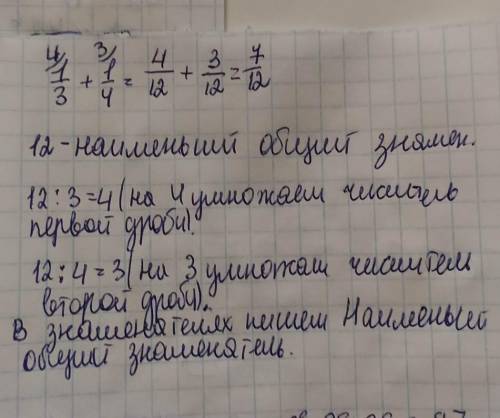 ⁴⁄1/3 + ³⁄1/4 = 4/12 + 3/12 = 7/12
12 - наименьший общий знамен.
12 : 3 = 4 (на 4 умножаем числитель
первой дроби).
12 : 4 = 3 (на 3 умножаем числитель
второй дроби).
В знаменателях пишем Наименьший
общий знаменатель.